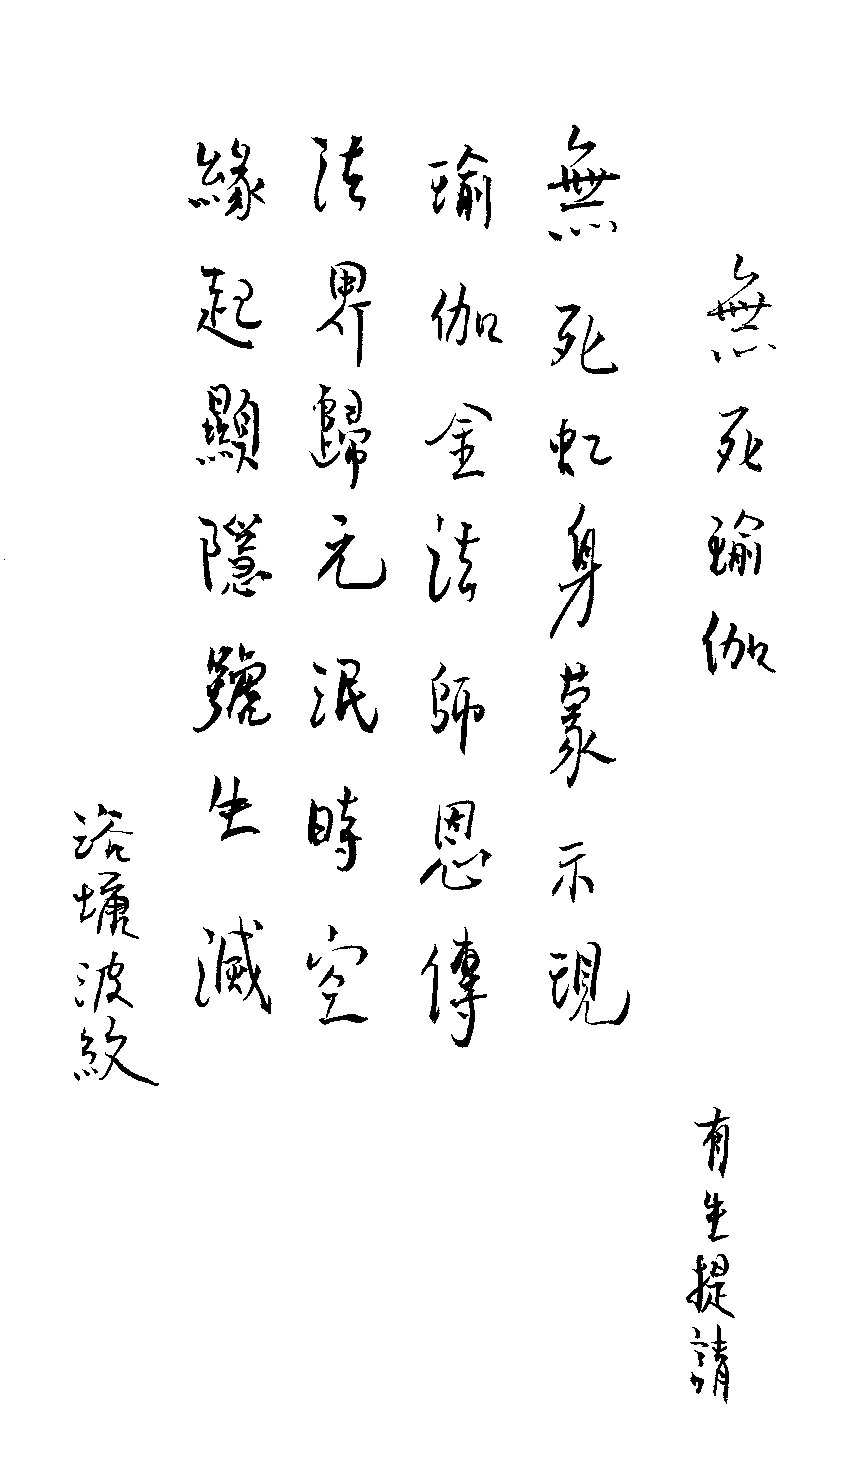 無死瑜伽
有生提請
無死虹身蒙示現
瑜伽金法師恩傳
法界歸元泯時空
緣起顯隱生滅
波紋